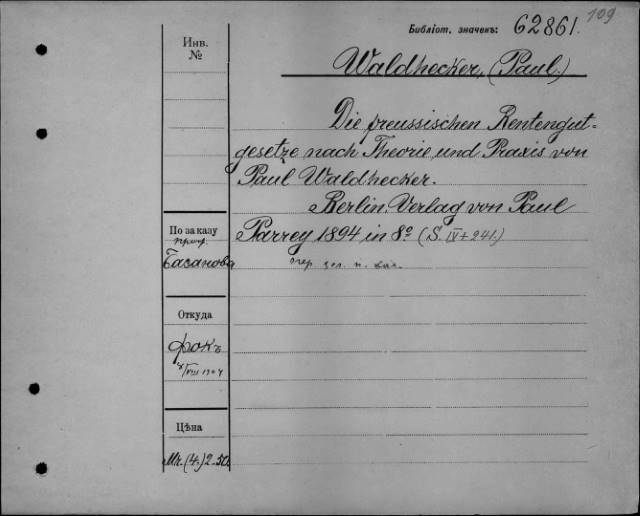 109
Библіот. значекъ: 62861.
Инв.
№
Waldhecker, (Paul.)
Die preussischen Rentengut=
gesetze nach Theorie und Praxis von
Paul Waldhecker.
Berlin. Verlag von Paul
Parrey 1894 in 8º (S. IV+241.)
По заказу
проф.
Басанова
Откуда
Фокъ
Цѣна
Mr. (4.) 2.50